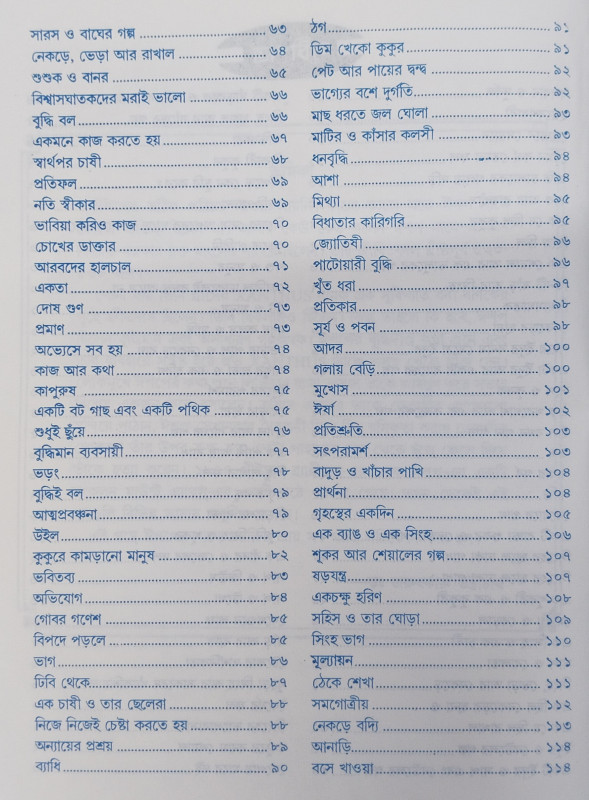 সারস ও বাঘের গল্প ........ ৬৩
নেকড়ে, ভেড়া আর রাখাল ........ ৬৪
শুশুক ও বানর ........ ৬৫
বিশ্বাসঘাতকদের মরাই ভালো ........ ৬৬
বুদ্ধি বল ........ ৬৬
একমনে কাজ করতে হয় ........ ৬৭
স্বার্থপর চাষী ........ ৬৮
প্রতিফল ........ ৬৯
নতি স্বীকার ........ ৬৯
ভাবিয়া করিও কাজ ........ ৭০
চোখের ডাক্তার ........ ৭০
আরবদের হালচাল ........ ৭১
একতা ........ ৭২
দোষ গুণ ........ ৭৩
প্রমাণ ........ ৭৩
অভ্যেসে সব হয় ........ ৭৪
কাজ আর কথা ........ ৭৪
কাপুরুষ ........ ৭৫
একটি বট গাছ এবং একটি পথিক ........ ৭৫
শুধুই ছুঁয়ে ........ ৭৬
বুদ্ধিমান ব্যবসায়ী ........ ৭৭
ভড়ং ........ ৭৮
বুদ্ধিই বল ........ ৭৯
আত্মপ্রবঞ্চনা ........ ৭৯
উইল ........ ৮০
কুকুরে কামড়ানো মানুষ ........ ৮২
ভবিতব্য ........ ৮৩
অভিযোগ ........ ৮৪
গোবর গণেশ ........ ৮৫
বিপদে পড়লে ........ ৮৫
ভাগ ........ ৮৬
ঢিবি থেকে ........ ৮৭
এক চাষী ও তার ছেলেরা ........ ৮৮
নিজে নিজেই চেষ্টা করতে হয় ........ ৮৮
অন্যায়ের প্রশ্রয় ........ ৮৯
ব্যাধি ........ ৯০
ঠগ ........ ৯১
ডিম খেকো কুকুর ........ ৯১
পেট আর পায়ের দ্বন্দ্ব ........ ৯২
ভাগ্যের বশে দুর্গতি ........ ৯২
মাছ ধরতে জল ঘোলা ........ ৯৩
মাটির ও কাঁসার কলসী ........ ৯৩
ধনবৃদ্ধি ........ ৯৪
আশা ........ ৯৪
মিথ্যা ........ ৯৫
বিধাতার কারিগরি ........ ৯৫
জ্যোতিষী ........ ৯৬
পাটোয়ারী বুদ্ধি ........ ৯৬
খুঁত ধরা ........ ৯৭
প্রতিকার ........ ৯৮
সূর্য ও পবন ........ ৯৮
আদর ........ ১০০
গলায় বেড়ি ........ ১০০
মুখোস ........ ১০১
ঈর্ষা ........ ১০২
প্রতিশ্রুতি ........ ১০৩
সৎপরামর্শ ........ ১০৩
বাদুড় ও খাঁচার পাখি ........ ১০৪
প্রার্থনা ........ ১০৪
গৃহস্থের একদিন ........ ১০৫
এক ব্যাঙ ও এক সিংহ ........ ১০৬
শূকর আর শেয়ালের গল্প ........ ১০৭
ষড়যন্ত্র ........ ১০৭
একচক্ষু হরিণ ........ ১০৮
সহিস ও তার ঘোড়া ........ ১০৯
সিংহ ভাগ ........ ১১০
মূল্যায়ন ........ ১১১
ঠেকে শেখা ........ ১১১
সমগোত্রীয় ........ ১১২
নেকড়ে বদ্যি ........ ১১৩
আনাড়ি ........ ১১৪
বসে খাওয়া ........ ১১৪